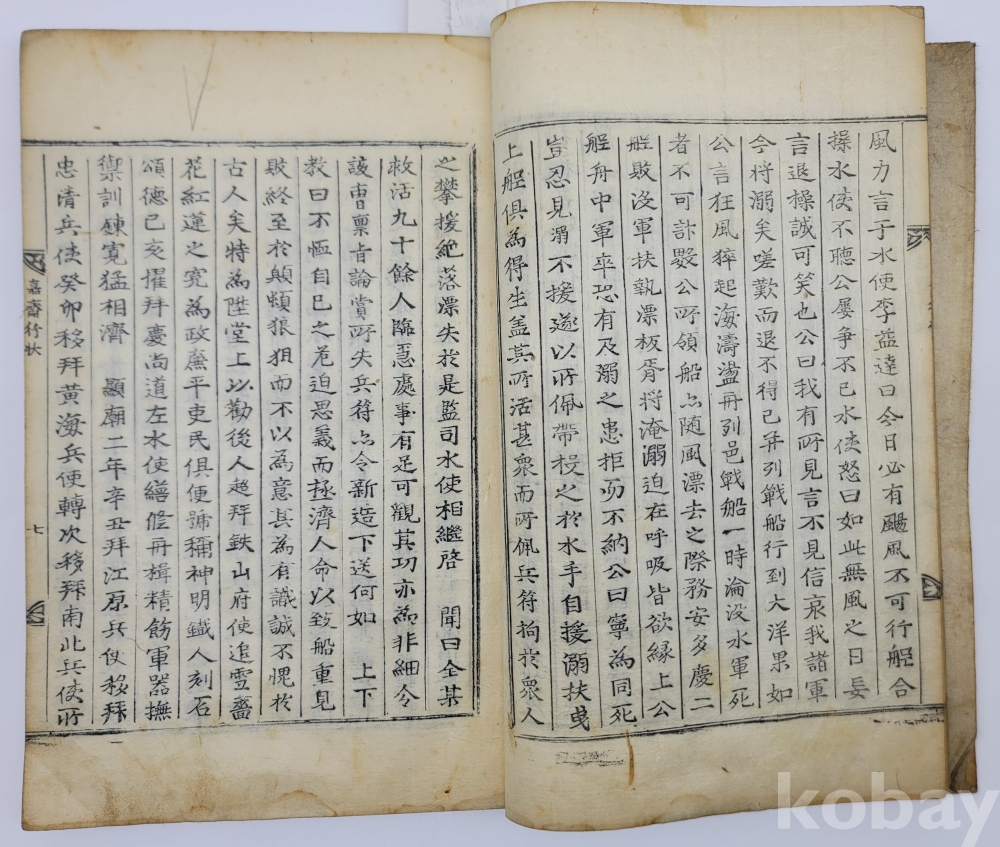 風力言于水使李益達曰今日必有颶風不可行船合
操水使不聽公屢爭不已水使怒曰如此無風之日妄
言退操誠可笑也公曰我有所見言不見信哀我諸軍
今將溺矣嗟歎而退不得已並列戰船行到大洋果如
公言狂風猝起海濤盪舟列邑戰船一時淪没水軍死
者不可計數公所領船亦随風漂去之際務安多慶二
船敗沒軍扶執漂板胥將淹溺迫在呼吸皆欲縁上公
船舟中軍卒恐有及溺之患拒而不納公曰寧為同死
豈忍見溺不援遂以所佩帶投之於水手自援溺扶曳
上船俱為得生盖其所活甚衆而所佩兵符拘於衆人
之攀援絶落漂失於是監司水使相繼啓 聞曰全某
救活九十餘人臨急處事有足可觀其功亦為非細令
該曹稟旨論賞所失兵符亦令新造下送何如 上下
教曰不恤自己之危迫思義而拯濟人命以致船重見
敗終至於顛頓狼狽而不以為意其為有識誠不愧於
古人矣特為陞堂上以勸後人超拜鉄山府使追雪齋
花紅蓮之寃為政廉平吏民俱便號稱神明鐵人刻石
頌德己亥擢拜慶尚道左水使繕修舟楫精飭軍器撫
禦訓鍊寬猛相濟 顯廟二年辛丑拜江原兵使移拜
忠清兵使癸卯移拜黄海兵使轉次移拜南北兵使所
嘉齋行狀
七
kobay